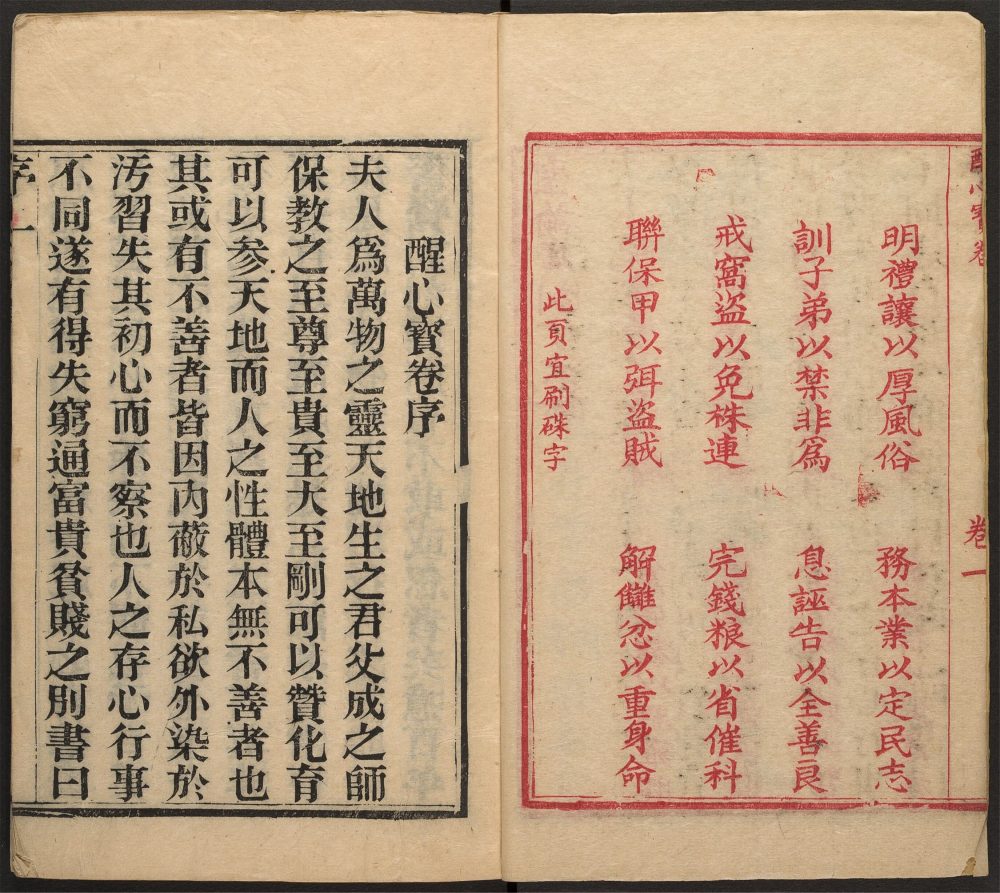 醒心寶卷
卷一
明禮讓以厚風俗
務本業以定民志
訓子弟以禁非爲
息誣告以全善良
戒窩盜以免株連
完錢粮以省催科
聯保甲以弭盜賊
解讎忿以重身命
此頁宜刷硃字
醒心寶卷序
夫人爲萬物之靈天地生之君父成之師
保教之至尊至貴至大至剛可以贊化育
可以参天地而人之性體本無不善者也
其或有不善者皆因內蔽於私欲外染於
汚習失其初心而不察也人之存心行事
不同遂有得失窮通富貴貧賤之別書曰
序
一